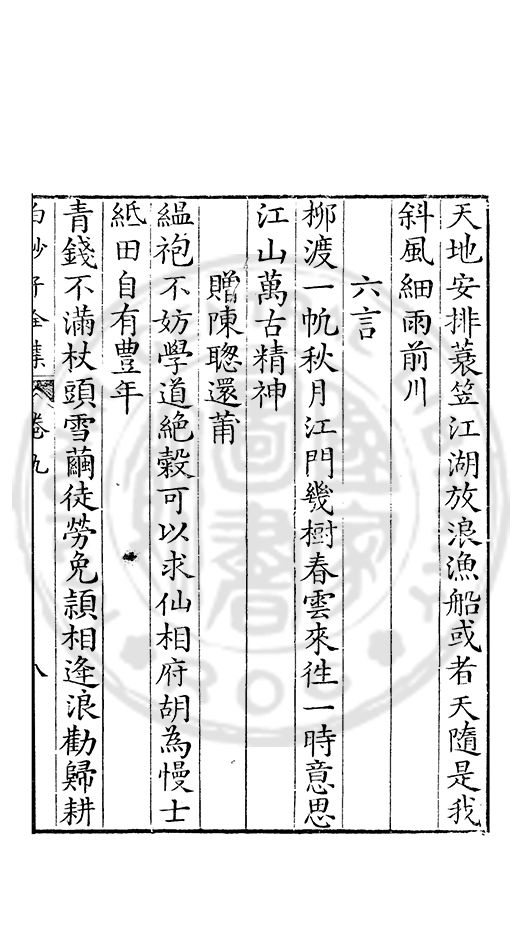 天地安排蓑笠江湖放浪漁船或者天隨是我
斜風細雨前川
六言
柳渡一帆秋月江門幾樹春雲來徃一時意思
江山萬古精神
贈陳聰還莆
緼袍不妨學道絶糓可以求仙相府胡為慢士
紙田自有豊年
青錢不滿杖頭雪繭徒勞免頴相逢浪勸歸耕
白沙子全集 卷九 八